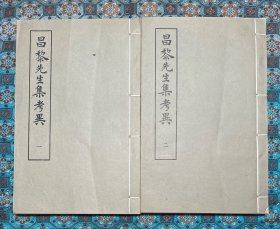 昌黎先生集考異 一
昌黎先生集考異 二